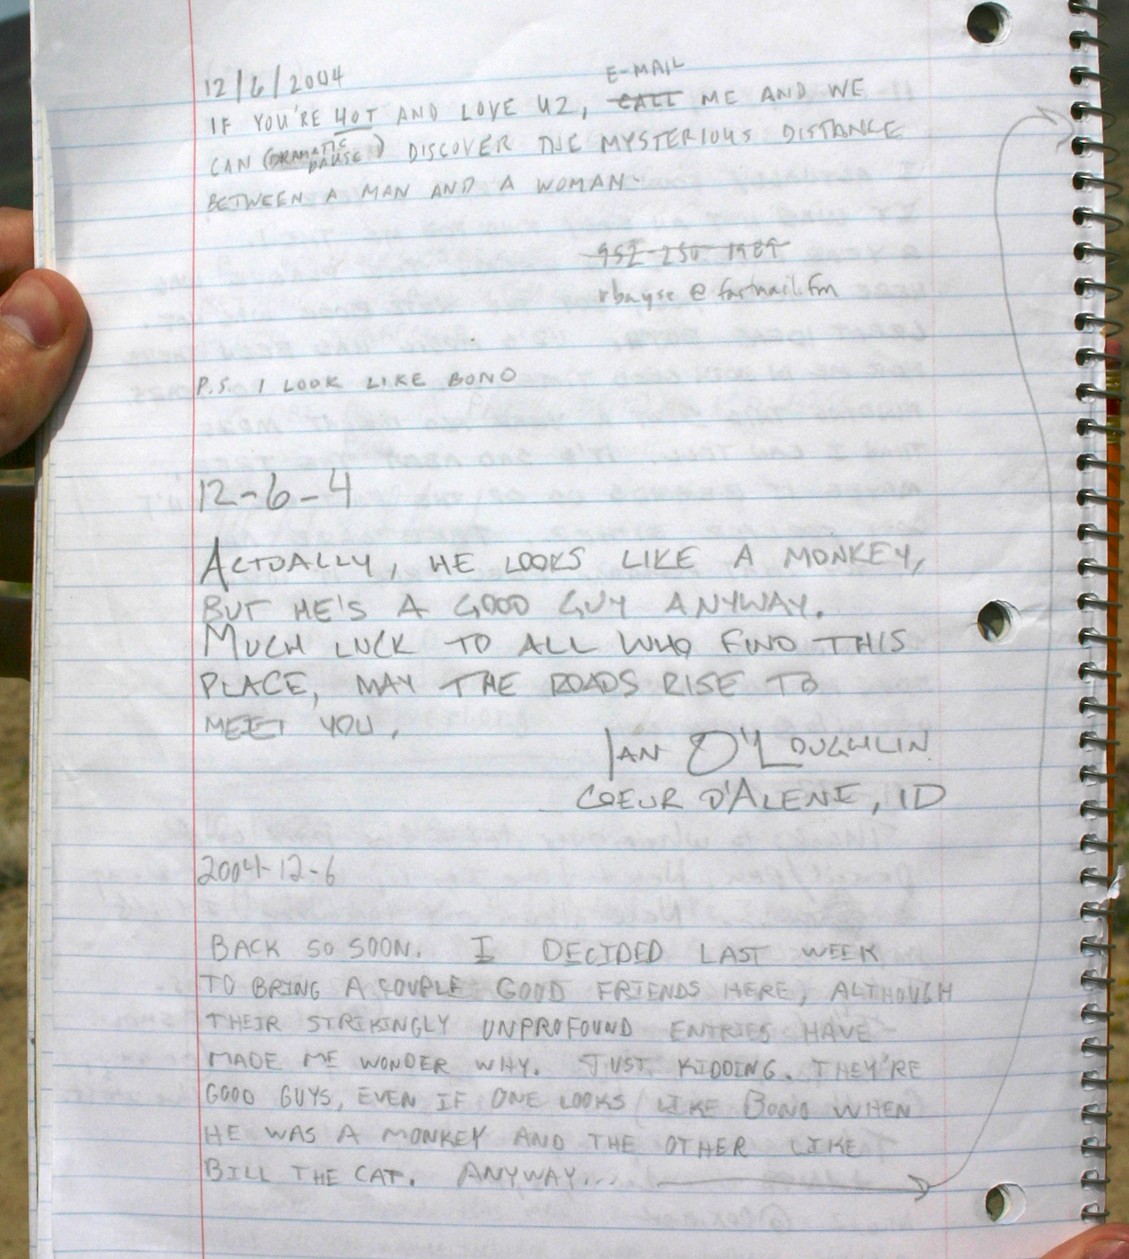 12/6/2004
E-MAIL
IF YOU'RE HOT AND LOVE U2, CALL ME AND WE
CAN (DRAMATIC PAUSE) DISCOVER THE MYSTERIOUS DISTANCE
BETWEEN A MAN AND A WOMAN.
rbayse@fastmail.fm
P.S. I LOOK LIKE BONO
12-6-4
ACTUALLY, HE LOOKS LIKE A MONKEY,
BUT HE'S A GOOD GUY ANYWAY.
MUCH LUCK TO ALL WHO FIND THIS
PLACE, MAY THE ROADS RISE TO
MEET YOU.
IAN O'LOUGHLIN
COEUR D'ALENE, ID
2004-12-6
BACK SO SOON. I DECIDED LAST WEEK
TO BRING A COUPLE GOOD FRIENDS HERE, ALTHOUGH
THEIR STRIKINGLY UNPROFOUND ENTRIES HAVE
MADE ME WONDER WHY. JUST KIDDING. THEY'RE
GOOD GUYS, EVEN IF ONE LOOKS LIKE BONO WHEN
HE WAS A MONKEY AND THE OTHER LIKE
BILL THE CAT. ANYWAY...